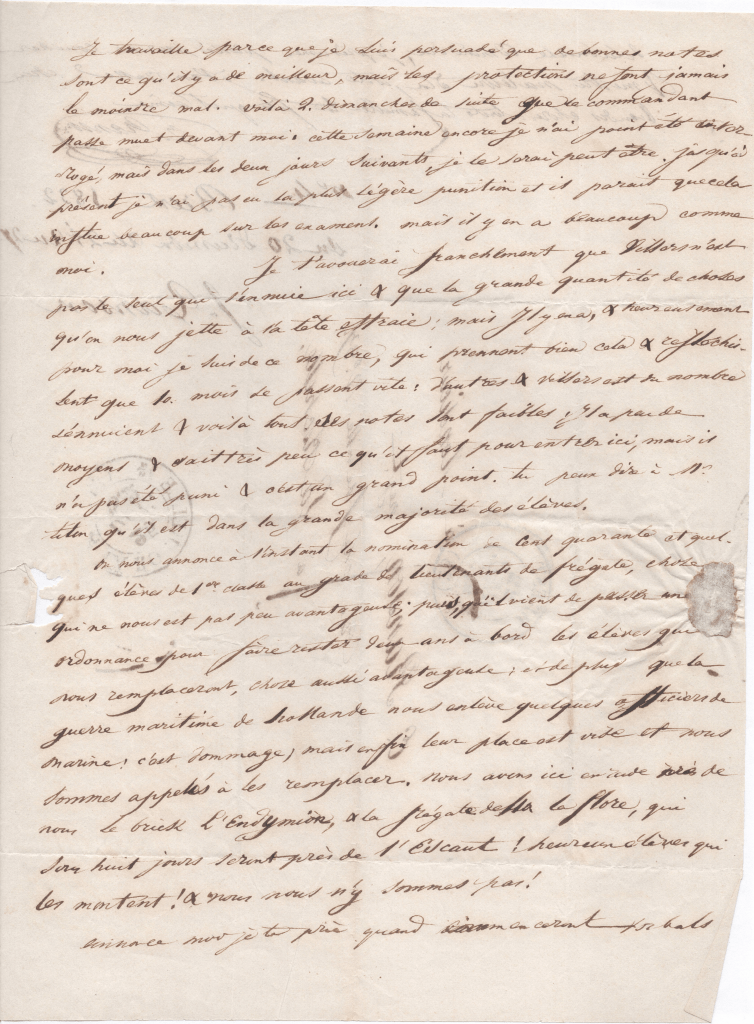 Je travaille parce que je suis persuadé que de bonnes notes
sont ce qu'il y a de meilleur, mais les protections ne font jamais
le moindre mal. voilà 2. dimanches de suite que le commandant
passe muet devant moi. cette semaine encore je n'ai point été inter
rogé, mais dans les deux jours suivants, je le serai peut être. jusqu'à
présent je n'ai pas eu la plus légère punition et il parait que cela
influe beaucoup sur les examens. mais il y en a beaucoup comme
moi. Je t'avouerai franchement que Villers n'est
pas le seul qui s'ennuie ici & que la grande quantité de choses
qu'on nous jette à la tête effraie; mais Il y en a, & heureusement
pour moi je suis de ce nombre, qui prennent bien cela & reflechis-
sent que 10. mois se passent vite; d'autres & Villers est du nombre
s'ennuient & voilà tout. Ses notes sont faibles; Il a peu de
moyens & sait très peu ce qu'il faut pour entrer ici, mais il
n'a pas été puni & c'est un grand point. tu peux dire à Mr
titon qu'il est dans la grande majorité des élèves.
On nous annonce à l'instant la nomination de cent quarante et quel-
ques élèves de 1ere classe au grade de lieutenants de frégate, chose
qui ne nous est pas peu avantageuse. puis, qu'il vient de passer une
ordonnance pour faire rester deux ans à bord les élèves qui
nous remplaceront, chose aussi avantageuse; et de plus que la
guerre maritime de hollande nous enlève quelques officiers de
marine; c'est dommage, mais enfin leur place est vide et nous
sommes appelés à les remplacer. nous avons ici en rade près de
nous le brick L'Endymion, & la frégate la flore, qui
sous huit jours seront près de l'Escaut! heureux élèves qui
les montent! & nous nous n'y sommes pas!
annonce moi je te prie quand commenceront les bals